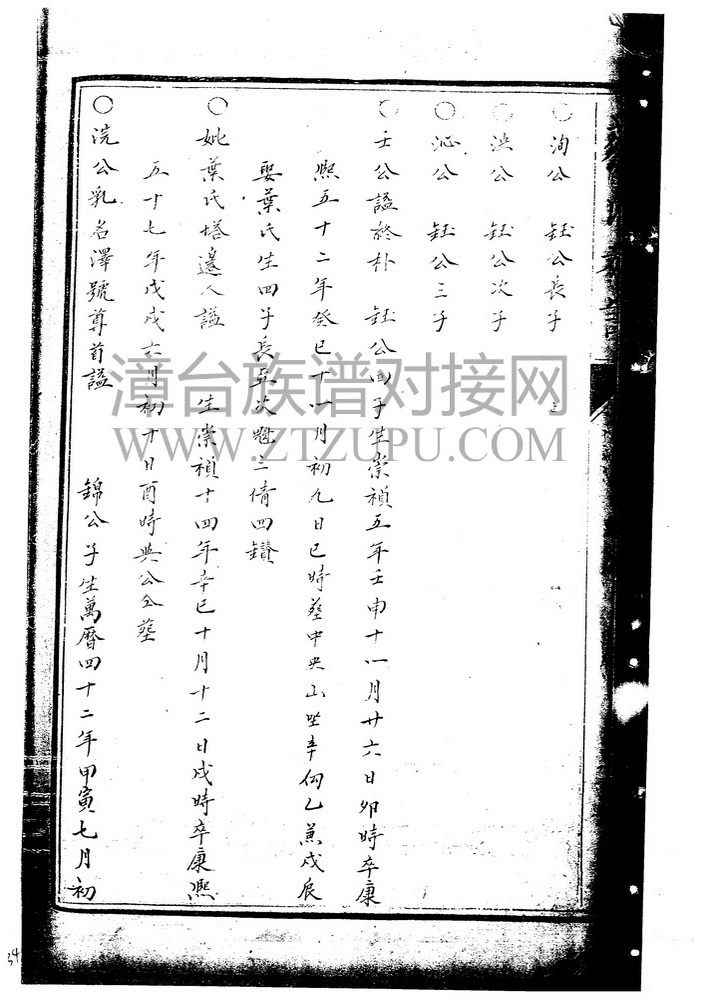 ○洵公　鈺公長子
○泱公　鈺公次子
○沁公　鈺公三子
○壬公諡終朴　鈺公四子生崇禎五年壬申十一月廿六日卯時卒康
熙五十二年癸巳十一月初九日巳時葬中央山坐辛向乙兼戌辰
娶葉氏生四子長五次魁三倩四鑽
○妣葉氏塔邊人諡　生崇禎十四年辛巳十月十二日戌時卒康熙
五十七年戊戌六月初十日酉時與公仝塟
○浣公乳名澤號尊首諡　錦公子生萬曆四十二年甲寅七月初
漳台族谱对接网
WWW.ZTZUPU.COM
34